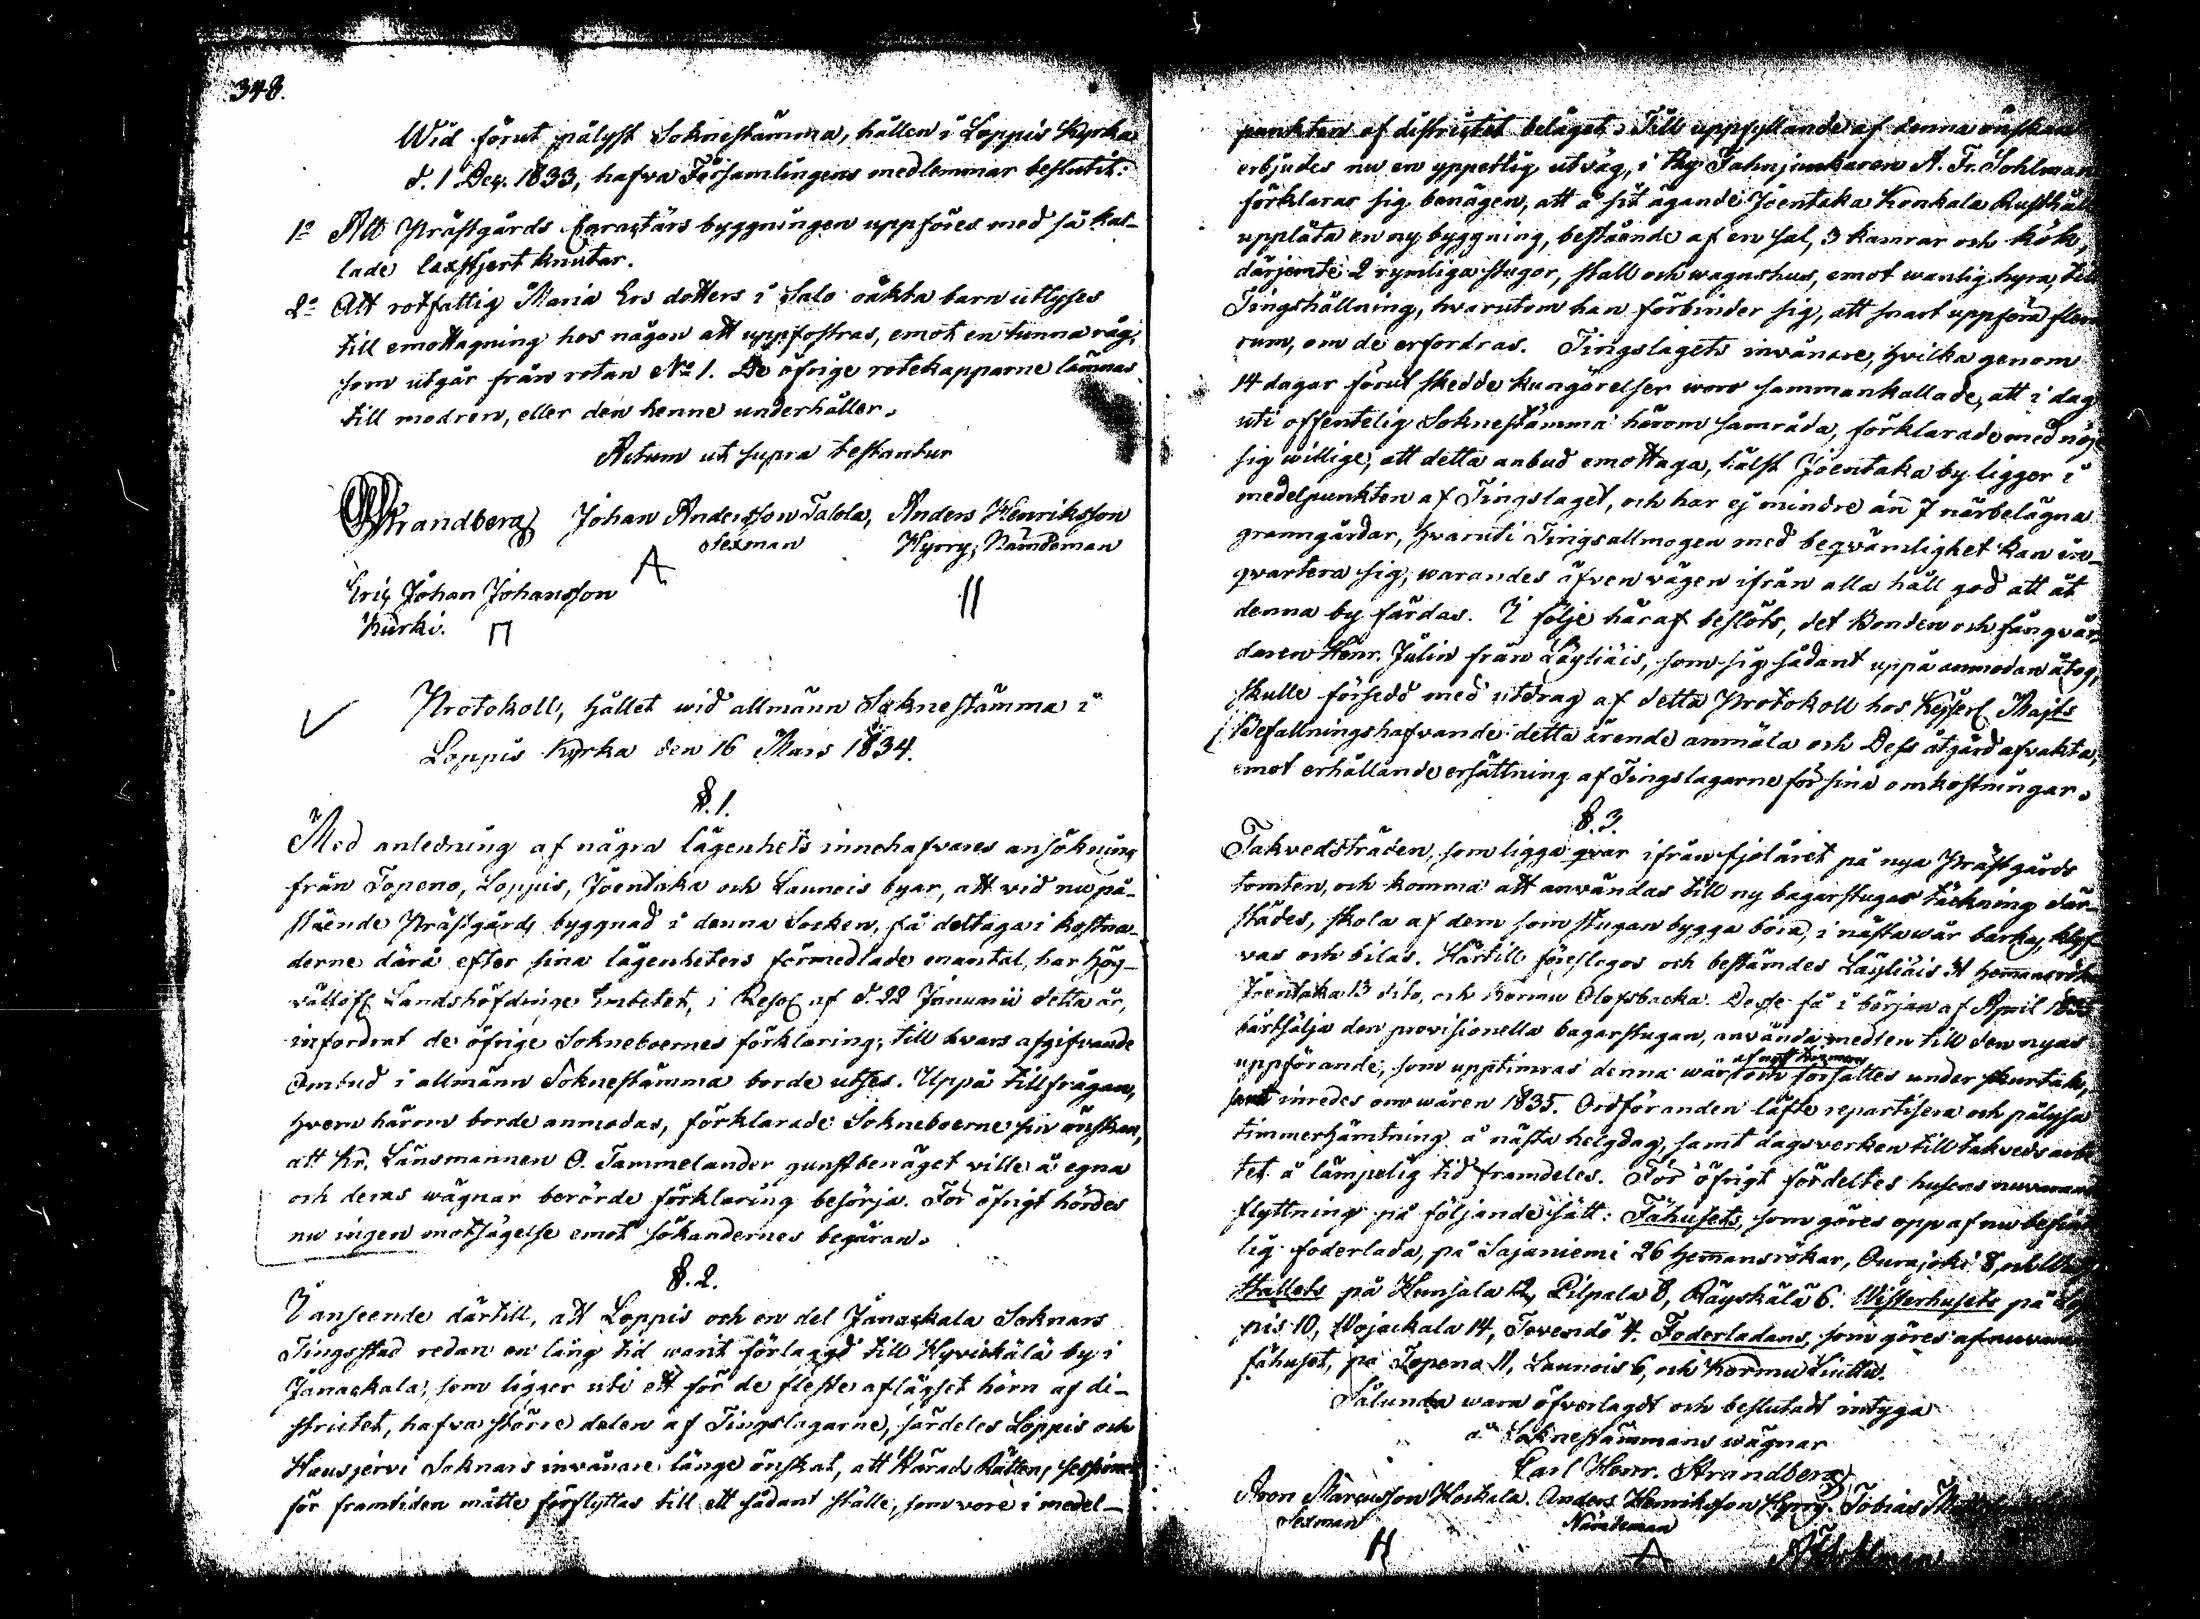 348.
Wid förut pålyst Soknestämma, hållen i Loppis Kyrka
d. 1 Dec. 1833, hafva Församlingens medlemmar beslutit:
1o Att Prästgårds Caractärs byggningen uppföres med så kal-
lade laxstjert knutar.
2o Att rotfattig Maria Ers dotters i Salo oäkta barn utlyses
till emottagning hos någon att uppfostras, emot en tunna råg,
som utgår från rotan No 1. De öfrige rotekapparne lämnas
till modren, eller den henne underhåller.
Actum ut supra testantur
Strandberg Johan Andersson Talola, Anders Henriksson
Sexman Hyrry, Nämdeman
Eric Johan Johansson
Kurki.
Protokoll, hållet wid allmänn Soknestämma i
Loppis Kyrka den 16 Mars 1834.
§. 1.
Med anledning af några lägenhets innehafvares ansökning
från Topeno, Loppis, Joentaka och Launois byar, att vid nu på-
stående Prästgårds byggnad i denna Socken, få deltaga i kostna-
derne därå efter sina lägenheters förmedlade mantal, har Hög-
vällofl. Landshöfdinge Embetet, i Resol. af d. 22 Januarii detta år,
infordrat de öfrige Sokneboernes förklaring, till hvars afgifvande
Ombud i allmänn Soknestämma borde utses. Uppå tillfrågan,
hvem härom borde anmodas, förklarade Sokneboerne sin önskan,
att Kr. Länsmannen O. Tammelander gunstbenäget ville å egna
och deras wägnar berörde förklaring besörja. För öfrigt hördes
nu ingen motsägelse emot sökandernes begäran.
§. 2.
I anseende därtill, att Loppis och en del Janackala Soknars
Tingsstad redan en lång tid warit förlaggd till Hyvickälä by i
Janackala, som ligger uti ett för de fleste aflägset hörn af di-
strictet, hafva större delen af Tingslagarne, särdeles Loppis och
Hausjervi Soknars invånare länge önskat, att Härads Rättens sessioner
för framtiden måtte förflyttas till ett sådant ställe, som vore i medel-
punkten af districtet beläget. Till uppfyllande af denna önskan
erbjudes nu en ypperlig utväg, i thy Fahnjunkaren A. Fr. Tohlman
förklarar sig benägen, att å sit ägande Joentaka Konkala Rusthåll
uppläta en ny byggning, bestående af en sal, 3 kamrar och kök,
därjemte 2 rymliga stugor, stall och wagnshus, emot wanlig hyra, till
Tingshållning, hvarutom han förbinder sig, att snart uppföra flera
rum, om de erfordras. Tingslagets invånare, hvilka genom
14 dagar förut skedde kungörelser woro sammankallade, att i dag
uti offentelig Soknestämma härom samråda, förklarade med nöje
sig willige, att detta anbud emottaga, hälst Joentaka by ligger i
medelpunkten af Tingslaget, och har ej mindre än 7 närbelägna
granngårdar, hvaruti Tingsallmogen med beqvämlighet kan in-
qvartera sig, warandes äfven vägen ifrån alla håll god att åt
denna by färdas. I följe häraf beslöts, det Bonden och fångvår-
daren Henr. Julin från Läyliäis, som sig sådant uppå anmodan åtog,
skulle försedd med utdrag af detta Protokoll hos Kejserl. Majts
Befallningshafvande detta ärende anmäla och Dess åtgärd afvakta,
emot erhållande ersättning af Tingslagarne för sina omkostningar.
§. 3.
Takvedsträden, som ligga qvar ifrån fjolåret på nya Prästgårds
tomten, och komma att användas till ny bagarstugas täckning där-
städes, skola af dem som stugan bygga böra, i nästa wår barkas, klyf-
vas och bilas. Härtill föreslogos och bestämdes Läyliäis 11 hemansrökar
Joentaka 13 dito, och Kormu Olofsbacka. Desse få i början af April 1835
bårtsälja den provisionella bagarstugan, använda medlen till den nyas
uppförande, som upptimras denna wår af nytt timmer om forsattes under skurtak,
samt inredes om wåren 1835. Ordföranden läfte repartisera och pålysa
timmerhämtning å nästa helgdag, samt dagsverken till takvedsarbe
tet å lämpelig tid framdeles. För öfrigt fördeltes husens nuvarande
flyttning på följande sätt: Fähusets, som göres opp af nu befint
lig foderlada, på Sajaniemi 26 hemansrökar, Ourajoki 8, och
Stallets på Hunsala 12, Pilpala 8, Räyskälä 6. Wisterhusets på Lop
pis 10, Wojackala 14, Tevendö 4. Foderladans, som göres af nuvarande
fähuset, på Topeno 11, Launois 6, och Kormu Luillu.
Sålunda wara öfverlagdt och beslutadt intyga
å Soknestämmans wägnar
Carl Henr. Strandberg
Aron Marcusson Hockala Anders Henriksson Hyrry. Tobias
Sexman Nämdeman